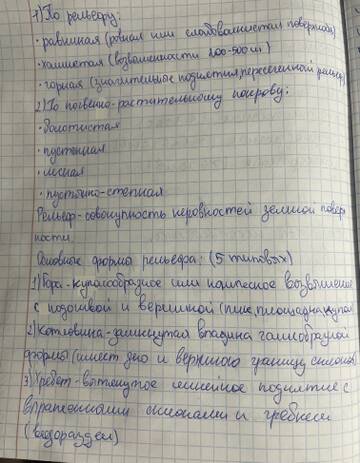 1) По рельефу:
• равнинная (ровная или слабоволнистая поверхность)
• холмистая (возвышенности 200-500 м)
• горная (значительные поднятия, пересеченный рельеф)
2) По почвенно-растительному покрову:
• болотистая
• пустынная
• лесная
• пустынно-степная
Рельеф - совокупность неровностей земной повер
ности.
Основные формы рельефа: (5 типовых)
1) Гора - куполообразное или коническое возвышение
с подошвой и вершиной (пик, площадка, купол
2) Котловина - замкнутая впадина чашеобразной
формы (имеет дно и верхнюю границу склонов)
3) Хребет - вытянутое линейное поднятие с
выраженными склонами и гребнем
(водораздел)